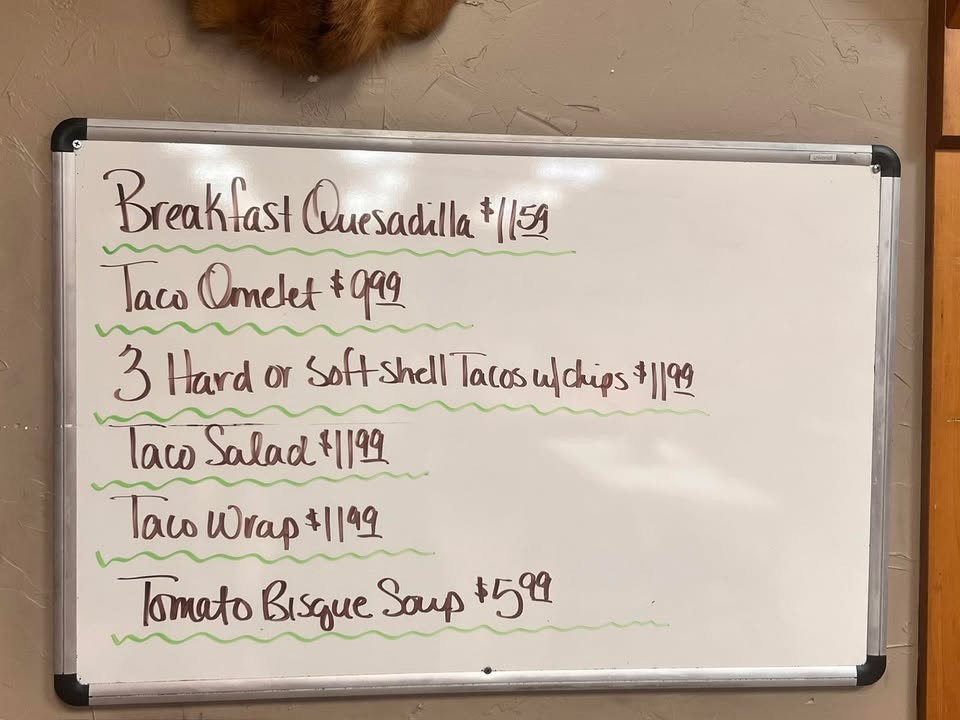 Breakfast Quesadilla $11.59
Taco Omelet $9.99
3 Hard or Soft shell Tacos w/chips $11.99
Taco Salad $11.99
Taco Wrap $11.99
Tomato Bisque Soup $5.99